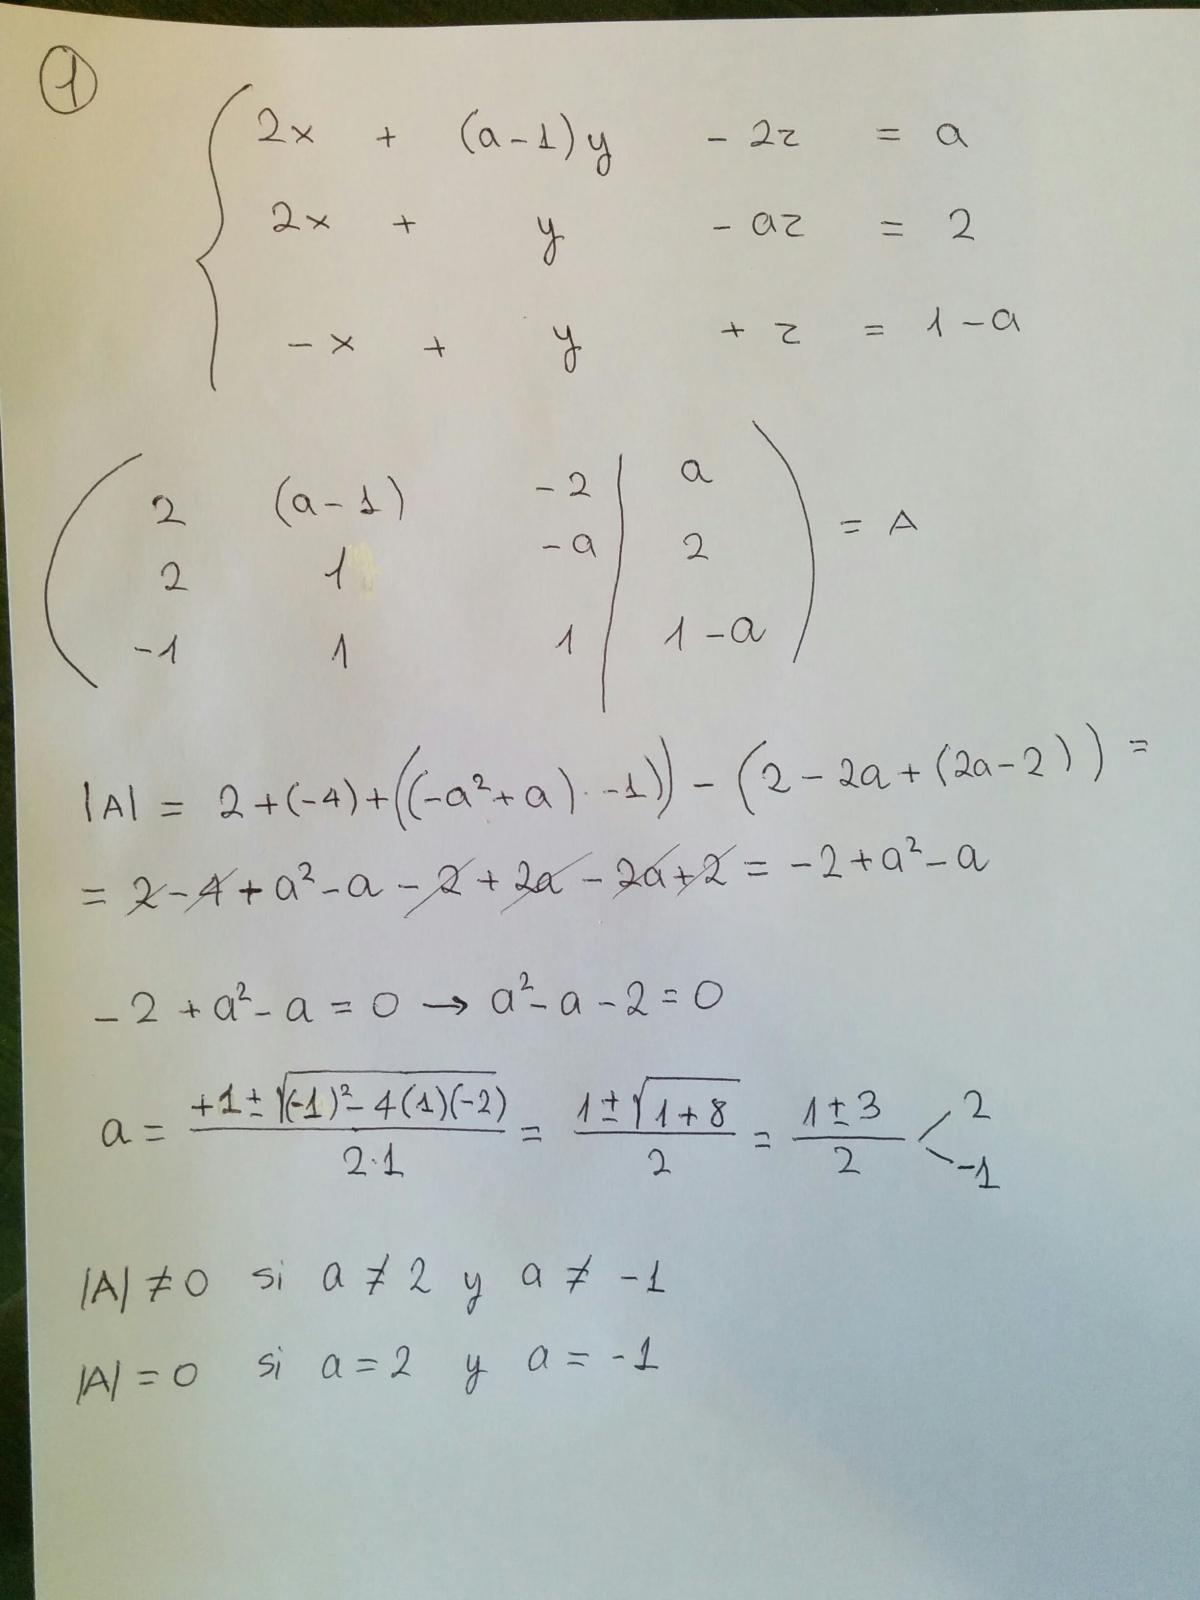 1
2x + (a-1)y - 2z = a
2x + y - az = 2
-x + y + z = 1-a
2 (a-1) -2 | a
2 1 -a | 2 = A
-1 1 1 | 1-a
|A| = 2+(-4)+((-a²+a)·-1)) - (2-2a+(2a-2)) =
= 2-4+a²-a-2+2a-2a+2 = -2+a²-a
-2+a²-a=0 → a²-a-2=0
a = (+1±√((-1)²-4(1)(-2)))/(2·1) = (1±√(1+8))/2 = (1±3)/2 < 2 -1
|A|≠0 si a≠2 y a≠-1
|A|=0 si a=2 y a=-1